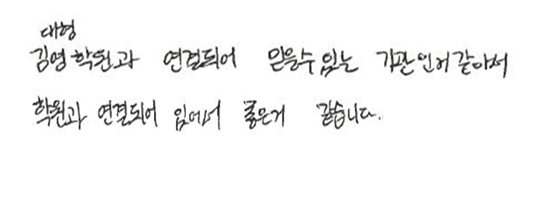 대형
김영학원과 연결되어 믿을수 있는 기관인거같아서
학원과 연결되어 있어서 좋은거 같습니다.